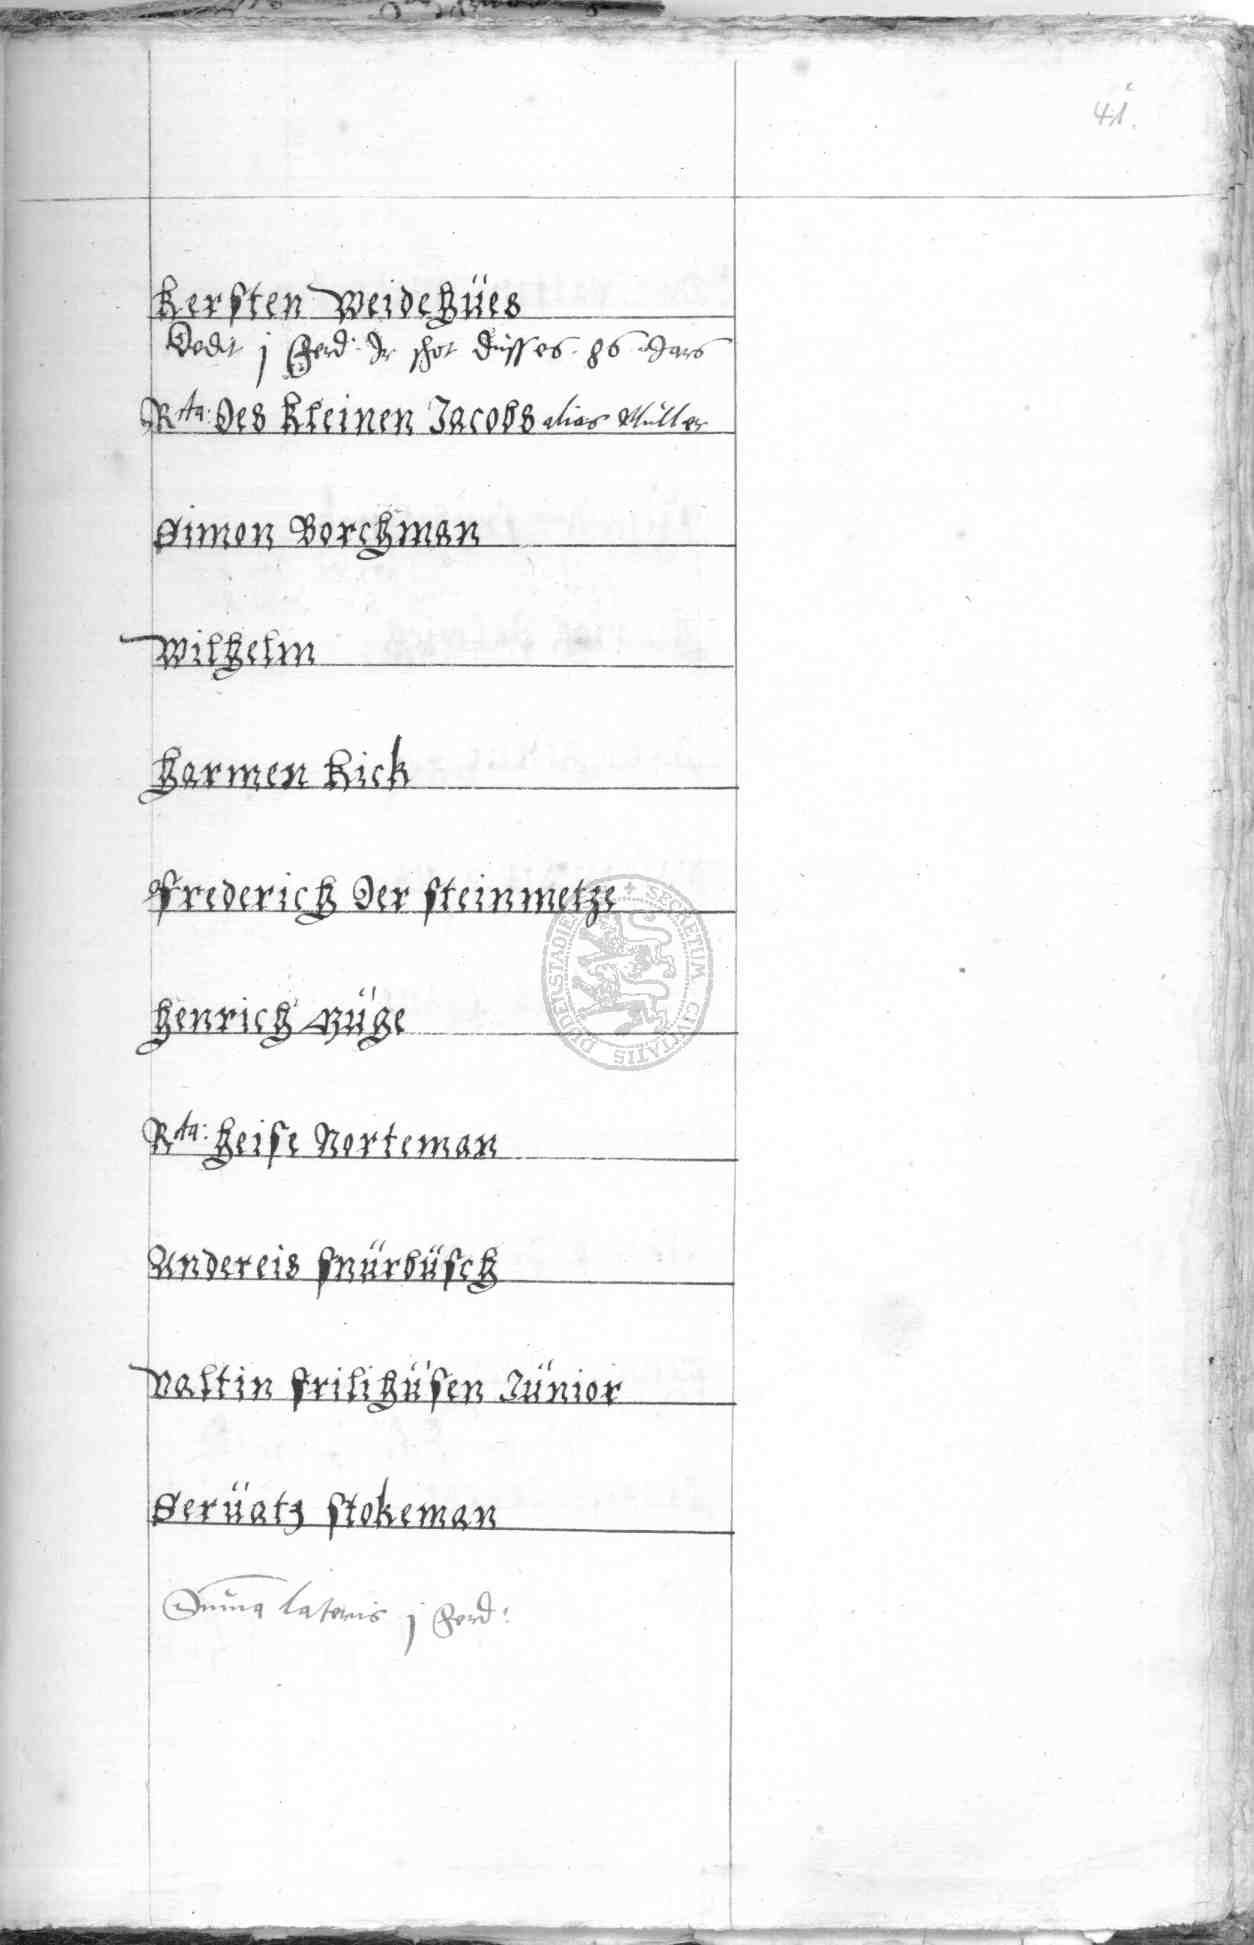 41.
Kersten Weidehües
Dedit j ferd: Ir schot düsses 86 Jars
Rta: Des Kleinen Jacobs alias Müller
Simon Borchman
Wilhelm
Harmen Kick
Frederich Der steinmetze
Henrich
Rta: Heise Norteman
Andereis snürbüsch
Valtin frilihüsen Jünior
Serüatz stokeman
Suma lateris j ferd:
SECRETUM CIVITATIS DUDERSTADIENSIS